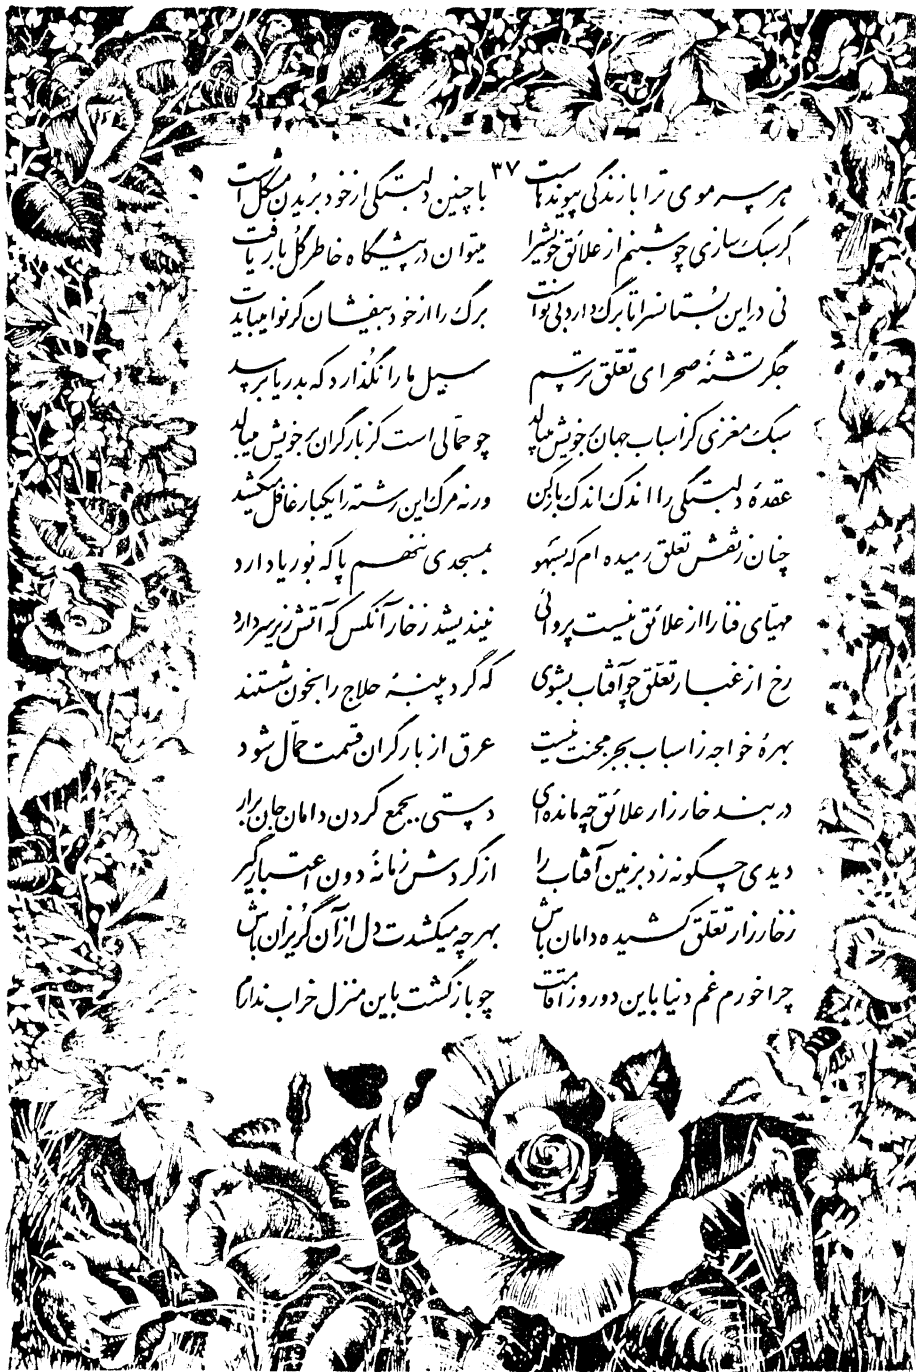 ۳۷
هر سر موی ترا با زندگی پیوندهاست با چنین دلبستگی از خود بریدن مشکل است
گر سبک سازی چو شبنم از علائق خویشرا میتوان در پیشگاه خاطر گل بار یافت
نی در این بستانسرا تا برگ دارد بی نواست برگ را از خود بیفشان گر نوا میبایدت
جگر تشنهٔ صحرای تعلّق ترسم سیل ما را نگذارد که بدریا برسد
سبک مغزی کز اسباب جهان بر خویش میبالد چو حمّالی است کز بار گران بر خویش میبالد
عقدهٔ دلبستگی را اندک اندک باز کن ورنه مرگ این رشته را یکبار غافل میکشد
چنان ز نقش تعلق رمیده ام که بسهو بمسجدی ننهم پا که بوریا دارد
مهیّای فنا را از علائق نیست پروائی نیندیشد ز خار آنکس که آتش زیر سر دارد
رخ از غبار تعلّق چو آفتاب بشوی که گرد پنبهٔ حلاج را بخون شستند
بهرهٔ خواجه ز اسباب بجز محنت نیست عرق از بار گران قسمت حمّال شود
در بند خارزار علائق چه مانده ای دستی بجمع کردن دامان جان برار
دیدی چگونه زد بزمین آفتاب را از گردش زمانهٔ دون اعتبار گیر
ز خارزار تعلق کشیده دامان باش بهر چه میکشدت دل از آن گریزان باش
چرا خورم غم دنیا باین دو روز اقامت چو بازگشت باین منزل خراب ندارم